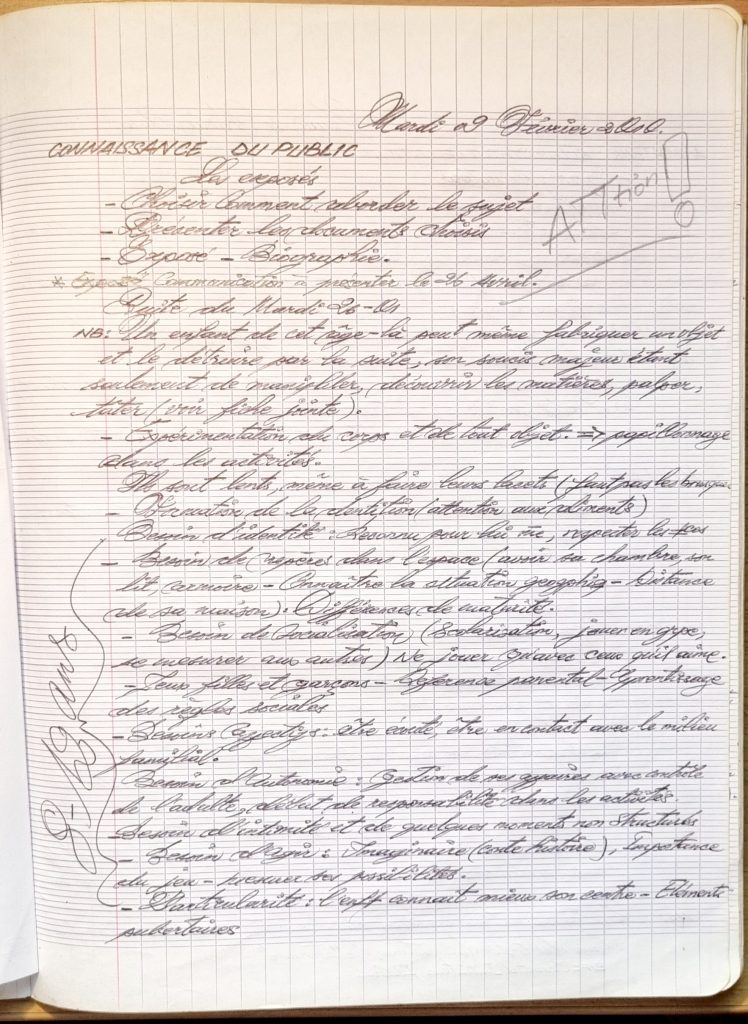 Mardi 09 Février 2010.
CONNAISSANCE DU PUBLIC
Les exposés
ATTtion!
- Choisir Comment aborder le sujet
- Présenter les documents choisis
- Exposé - Biographie.
* Exposé Communication à présenter le 26 Avril.
Suite du Mardi 26-01
NB: Un enfant de cet âge-là peut même fabriquer un objet
et le détruire par la suite, son soucis majeur étant
seulement de manipuler, découvrir les matières, palper,
tâter (voir fiche jointe).
- Expérimentation du corps et de tout objet. => papillonnage
dans les activités.
Ils sont lents, même à faire leurs lacets (faut pas les brusquer
- Formation de la dentition (attention aux aliments)
8-12 ans
Besoin d'identité : Reconnu pour lui m̄, respecter les
- Besoin de repères dans l'espace (avoir sa chambre, son
lit, armoire - Connaître la situation géographiq - Distance
de sa maison). Différences de maturité.
- Besoin de Socialisation (Scolarisation, jouer en grpe,
se mesurer aux autres) Ne jouer qu'avec ceux qu'il aime.
- Jeux filles et garçons - Référence parental - Apprentissage
des règles sociales
- Besoins affectifs : être écouté, être en contact avec le milieu
familial.
Besoin d'Autonomie : Gestion de ses affaires avec contrôle
de l'adulte, début de responsabilité dans les activités.
Besoin d'intimité et de quelques moments non structurés
- Besoin d'Agir : Imaginaire (conte histoire), Importance
du jeu - mesurer ses possibilités.
- Particularité : l'enft connait mieux son centre - Eléments
pubertaires